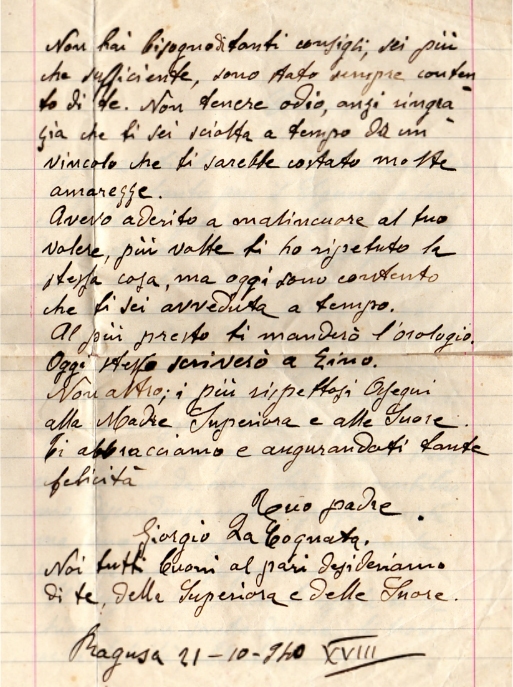 Non hai bisogno di tanti consigli, sei più
che sufficiente, sono stato sempre conten
to di te. Non tenere odio, anzi ringra
zia che ti sei sciolta a tempo da un
vincolo che ti sarebbe costato molte
amarezze.
Avevo aderito a malincuore al tuo
volere, più volte ti ho ripetuto la
stessa cosa, ma oggi sono contento
che ti sei avveduta a tempo.
Al più presto ti manderò l'orologio.
Oggi stesso scriverò a Gino.
Non altro; i più rispettosi Ossequi
alla Madre Superiora e alle Suore.
Ti abbracciamo e augurandoti tante
felicità
Tuo padre
Giorgio La Cognata.
Noi tutti buoni al pari desideriamo
di te, della Superiora e delle Suore.
Ragusa 21-10-940 XVIII